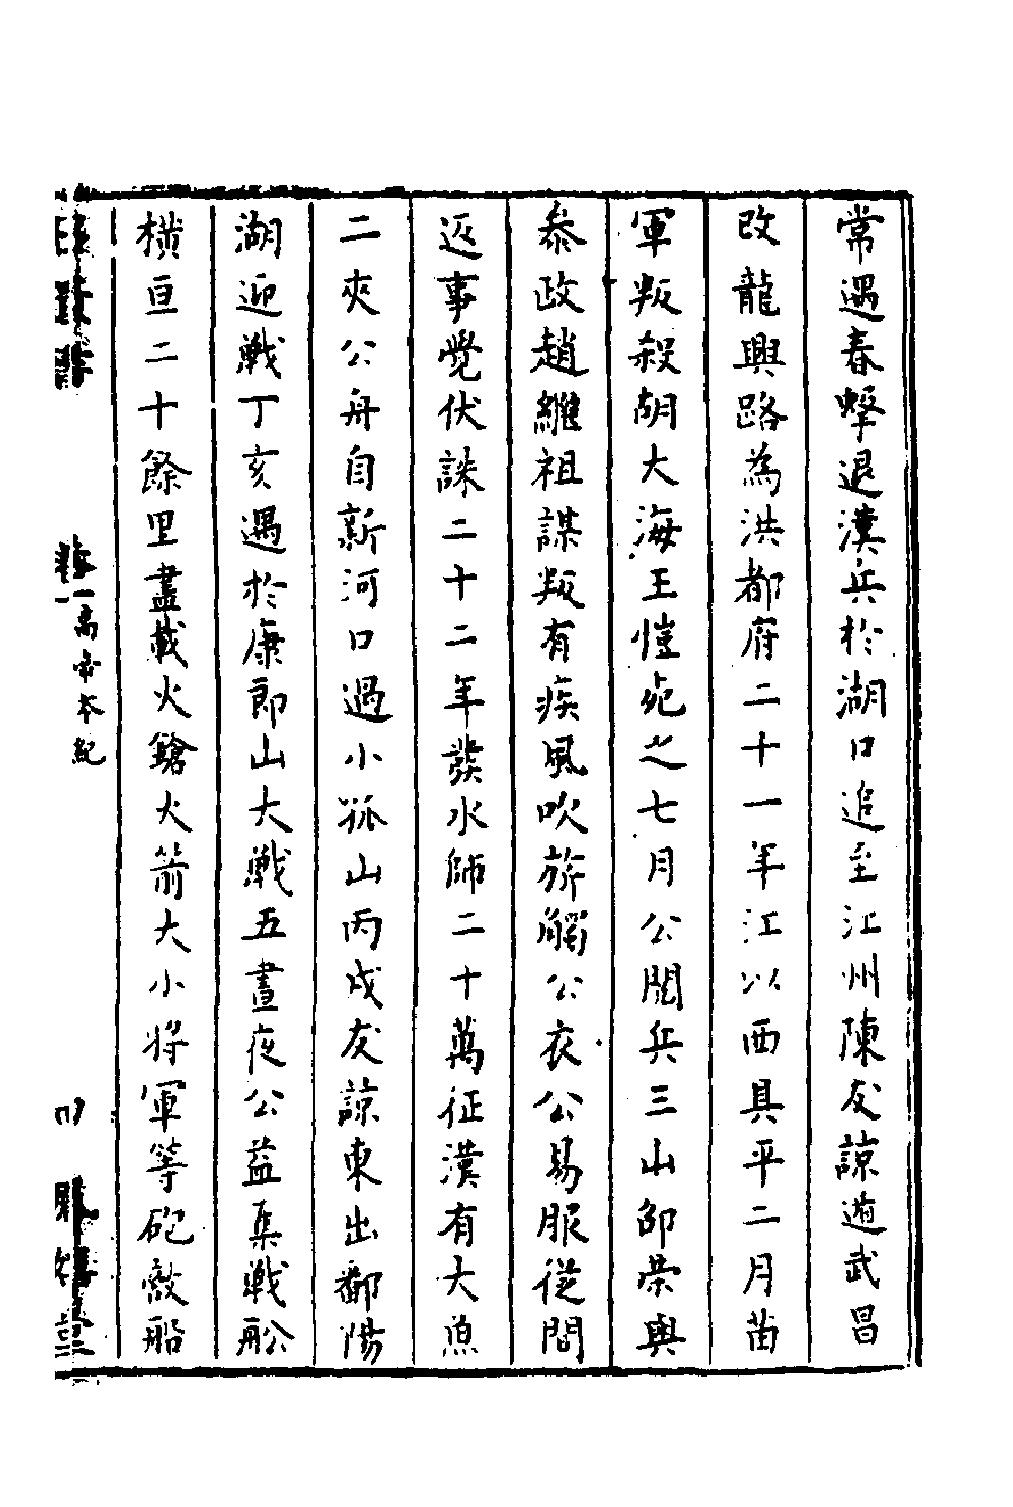 常遇春擊退漢兵於湖口追至江州陳友諒遁武昌
改龍興路為洪都府二十一年江以西具平二月苗
軍叛殺胡大海王愷死之七月公閱兵三山邵榮與
叅政趙繼祖謀叛有疾風吹旂觸公衣公易服從間
返事覺伏誅二十二年發水師二十萬征漢有大魚
二夾公舟自新河口過小孤山丙戌友諒東出鄱陽
湖迎戰丁亥遇於康郎山大戰五晝夜公益集戰舩
橫亘二十餘里盡載火鎗火箭大小將軍等砲敵船
卷一 高帝本紀
四